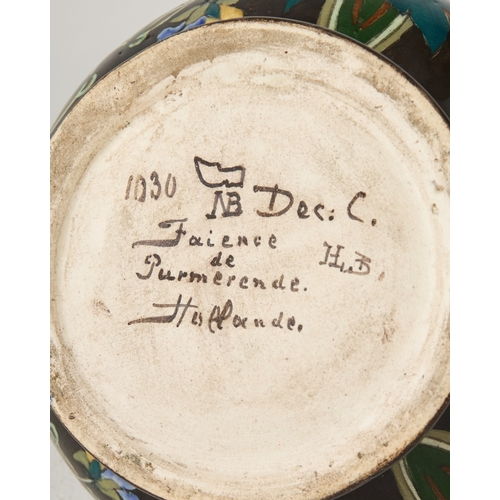 1030 NB Dec: C.
Faience
de
Purmerende.
Hollande.